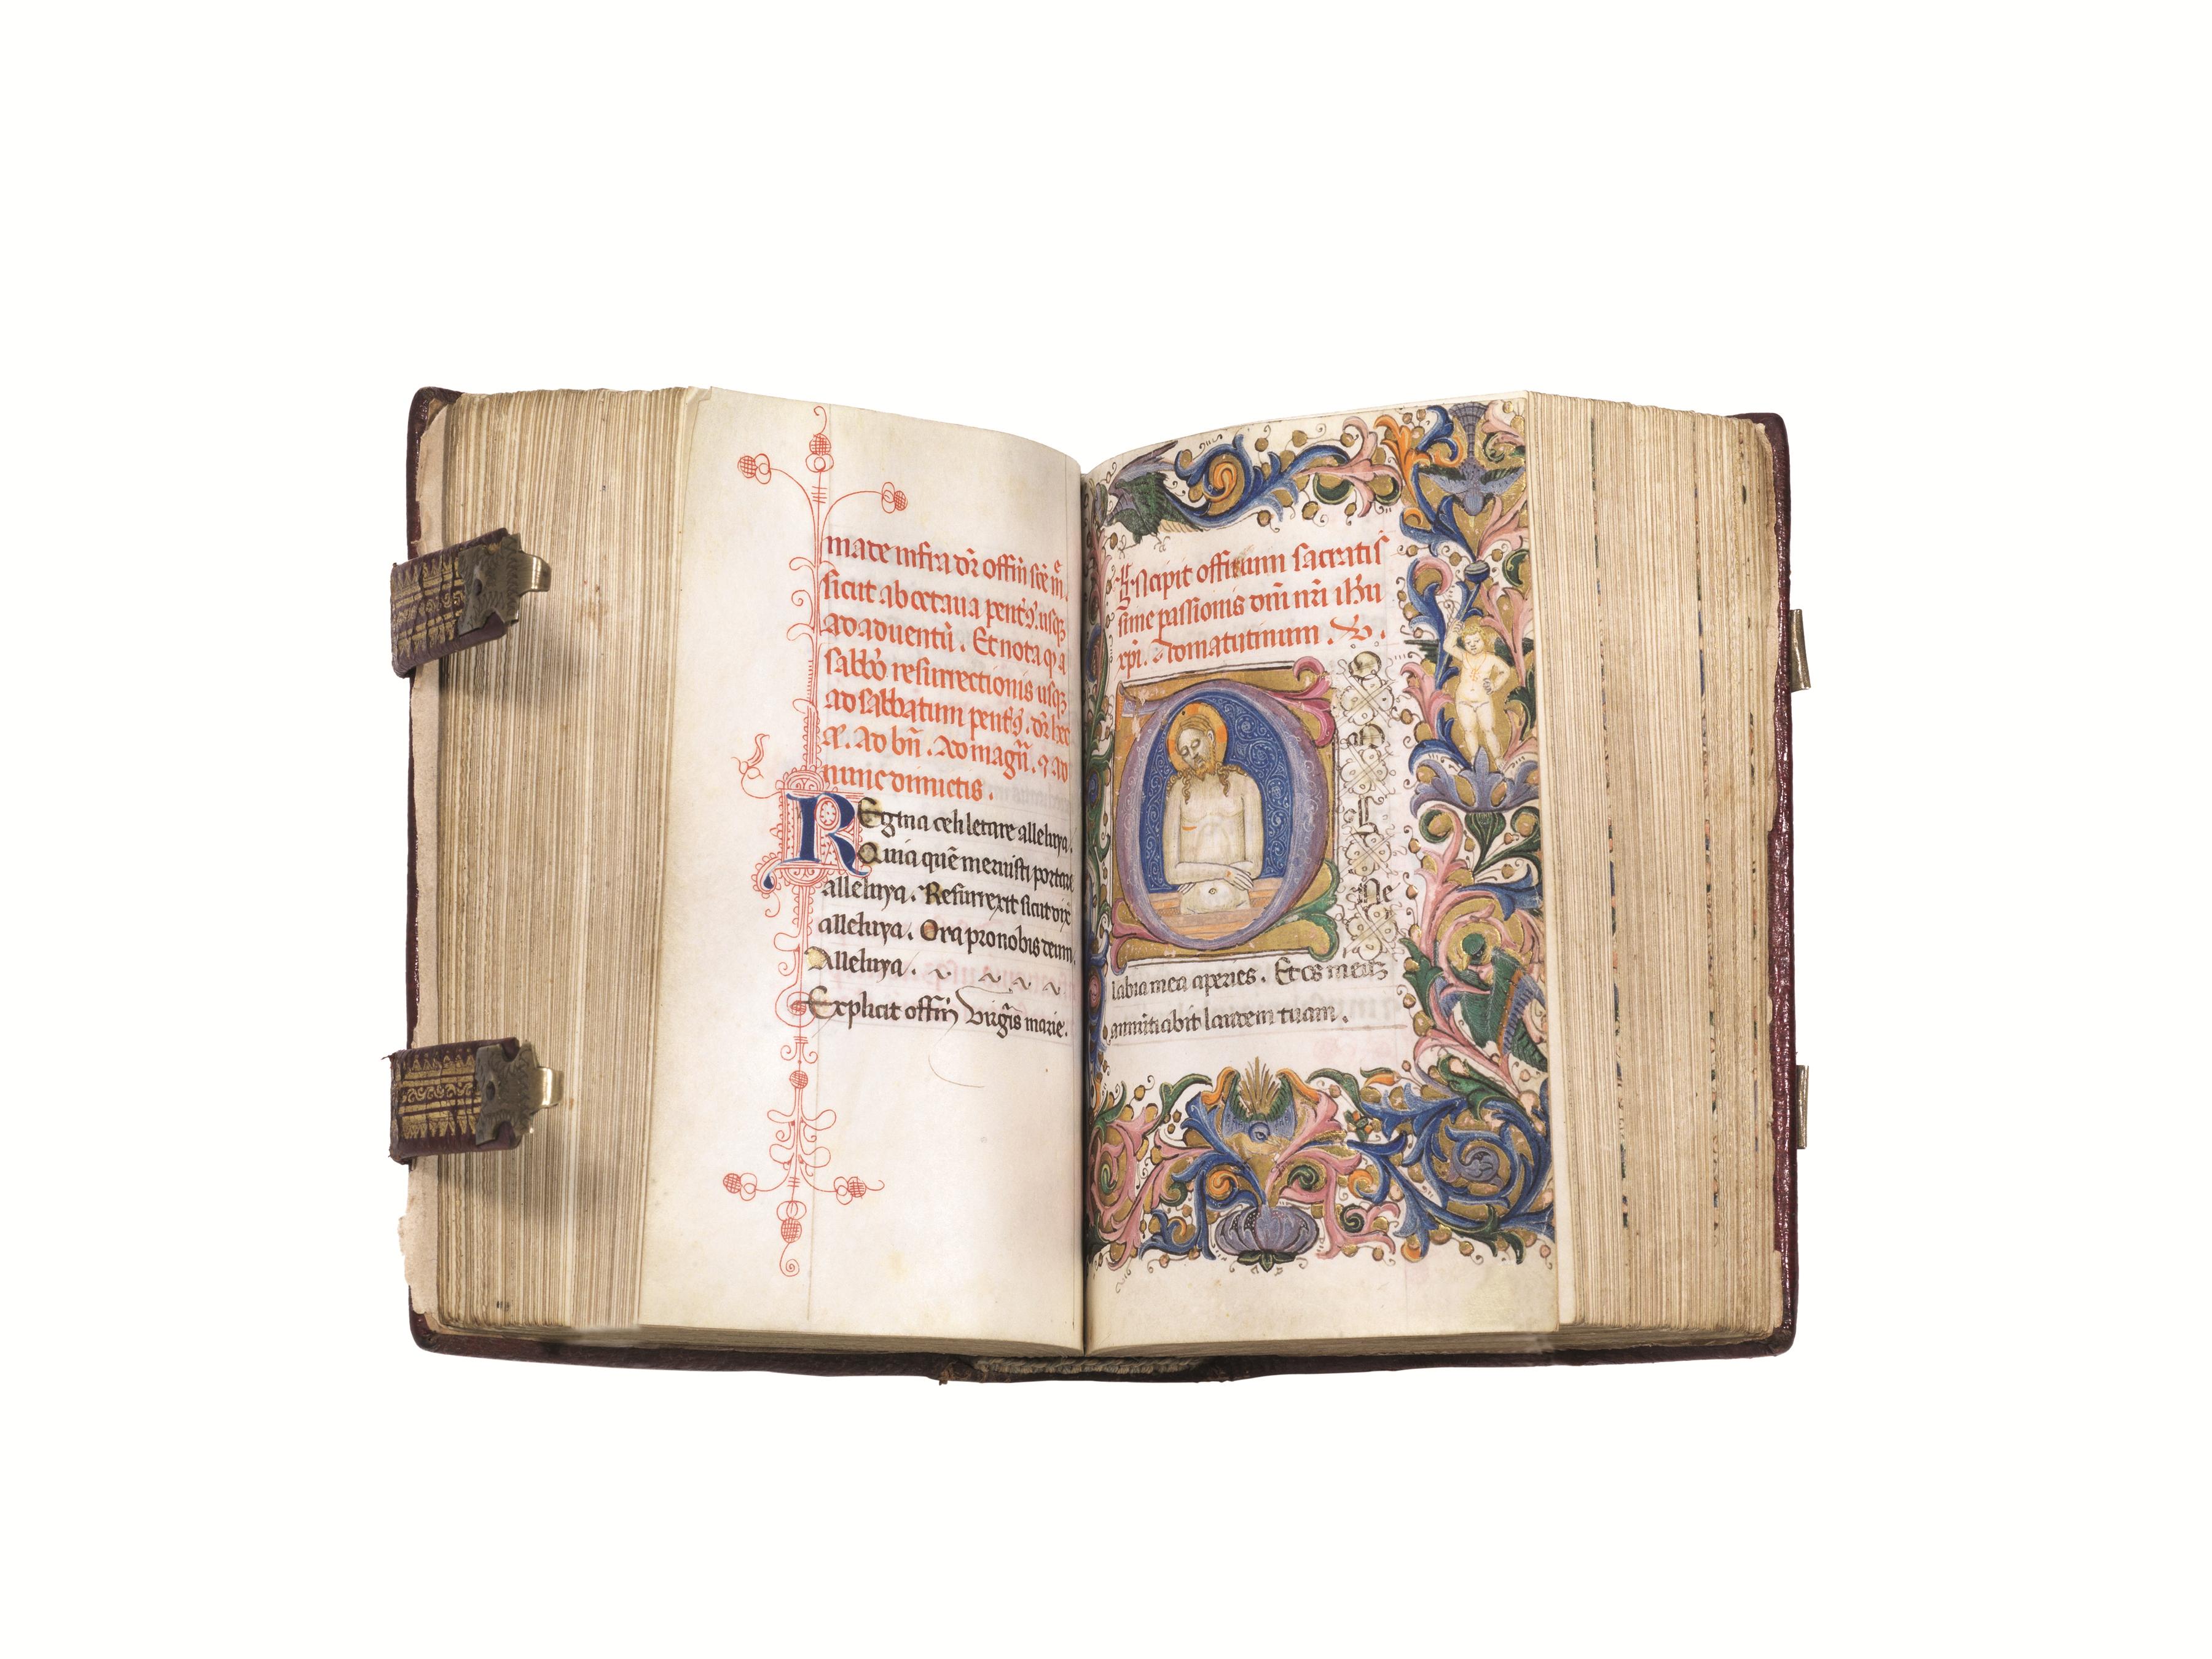 mane infra dr̄ offm̄ scē m̄.
sicut ab octaua pent̄. usq;
ad aduentū. Et nota q̄ a
sabbo resurrectionis usq;
ad sabbatum pent̄. dr̄ hec
a͞. Ad bn̄. Ad magn̄. ⁊ ad
nunc dimictis.
REgina celi letare alleluya.
Quia quē meruisti portare
alleluya. Resurrexit sicut dix̄
alleluya. Ora pro nobis deum.
Alleluya.
Explicit offm̄ uirg̃is marie.
Incipit offitium sacratis
sime passionis dn̄i nr̄i ihu
xp̄i. Ad matutinum.
D
L
Ne
labia mea aperies. Et os meuz
annūtiabit laudem tuam.